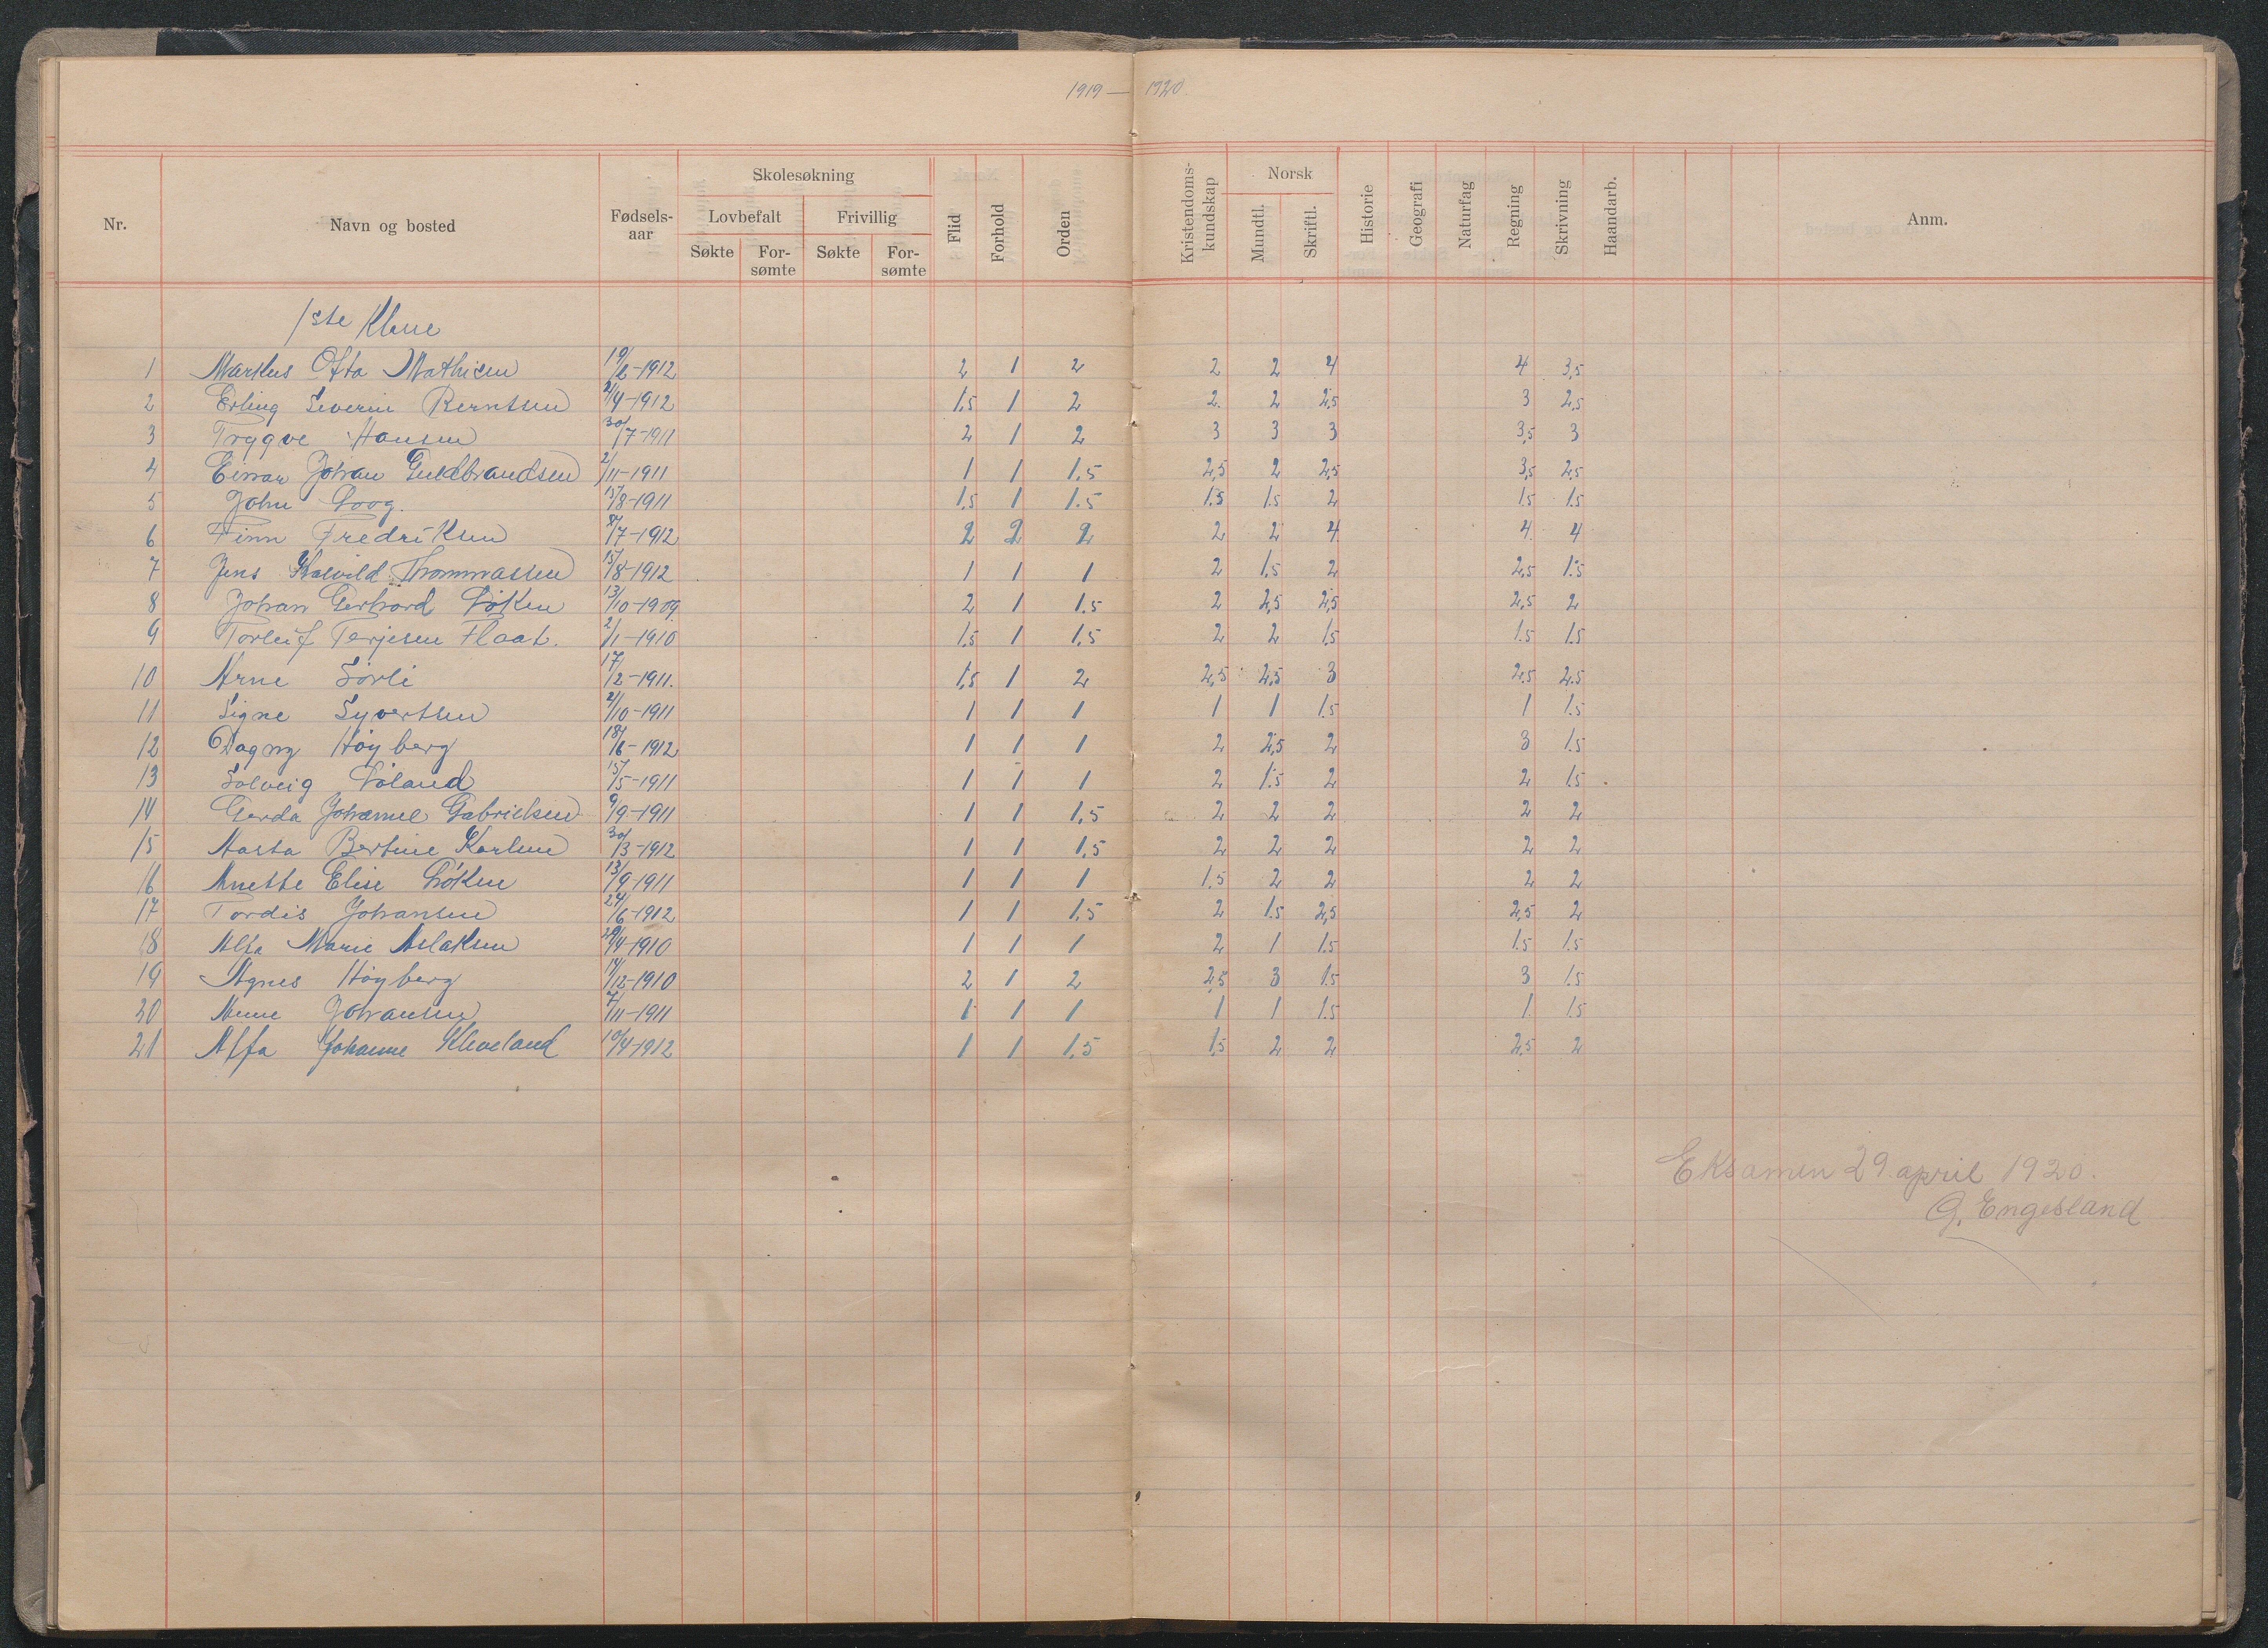 1919 — 1920.
Nr. Navn og bosted Fødsels-aar Skolesøkning Lovbefalt Frivillig Søkte For-sømte Søkte For-sømte Flid Forhold Orden Kristendoms-kundskap Norsk Mundtl. Skriftl. Historie Geografi Naturfag Regning Skrivning Haandarb. Anm.
1ste Klasse
1 Markus Ofta Mathisen 19/6-1912 2 1 2 2 2 4 4 3,5
2 Erling Severin Berntsen 2/4-1912 1,5 1 2 2. 2 2,5 3 2,5
3 Trygve Hansen 30/7-1911 2 1 2 3 3 3 3,5 3
4 Einar Johan Guldbrandsen 2/11-1911 1 1 1,5 2,5 2 2,5 3,5 2,5
5 John 15/8-1911 1,5 1 1.5 1.5 1.5 2 1.5 1.5
6 Finn Fredriksen 8/7-1912 2 2 2 2 2 4 4. 4
7 Jens Thommassen 15/8-1912 1 1 1 2 1,5 2 2,5 1.5
8 Johan Gerhard Løken 13/10-1909 2 1 1.5 2 2,5 2,5 2,5 2
9 Torleif Terjesen Flaat. 2/1-1910 1,5 1 1,5 2 2 1.5 1.5 1.5
10 Arne Sørli 17/2-1911. 1,5 1 2 2,5 2,5 3 2.5 2.5
11 Signe Syvertsen 2/10-1911 1 1 1 1 1 1.5 1 1.5
12 Dagny Høyberg 18/6-1912 1 1 1 2 2,5 2 3 1.5
13 Solveig Løland 15/5-1911 1 1 1 2 1.5 2 2 1.5
14 Gerda Johanne Gabrielsen 9/9-1911 1 1 1,5 2 2 2 2 2
15 Aasta Bertine Karlsen 30/3-1912 1 1 1,5 2 2 2 2 2
16 Anette Elise Løken 13/9-1911 1 1 1 1.5 2 2 2 2
17 Tordis Johansen 24/6-1912 1 1 1,5 2 1.5 2,5 2,5 2
18 Alfa Marie Aslaksen 29/4-1910 1 1 1 2 1 1.5 1.5 1.5
19 Agnes Høyberg 14/12-1910 2 1 2 2,5 3 1.5 3 1.5
20 Johansen 7/11-1911 1 1 1 1 1 1.5 1. 1.5
21 Alfa Johanne Kleveland 10/4-1912 1 1 1,5 1,5 2 2 2,5 2
Eksamen 29. april 1920.
G. Engesland